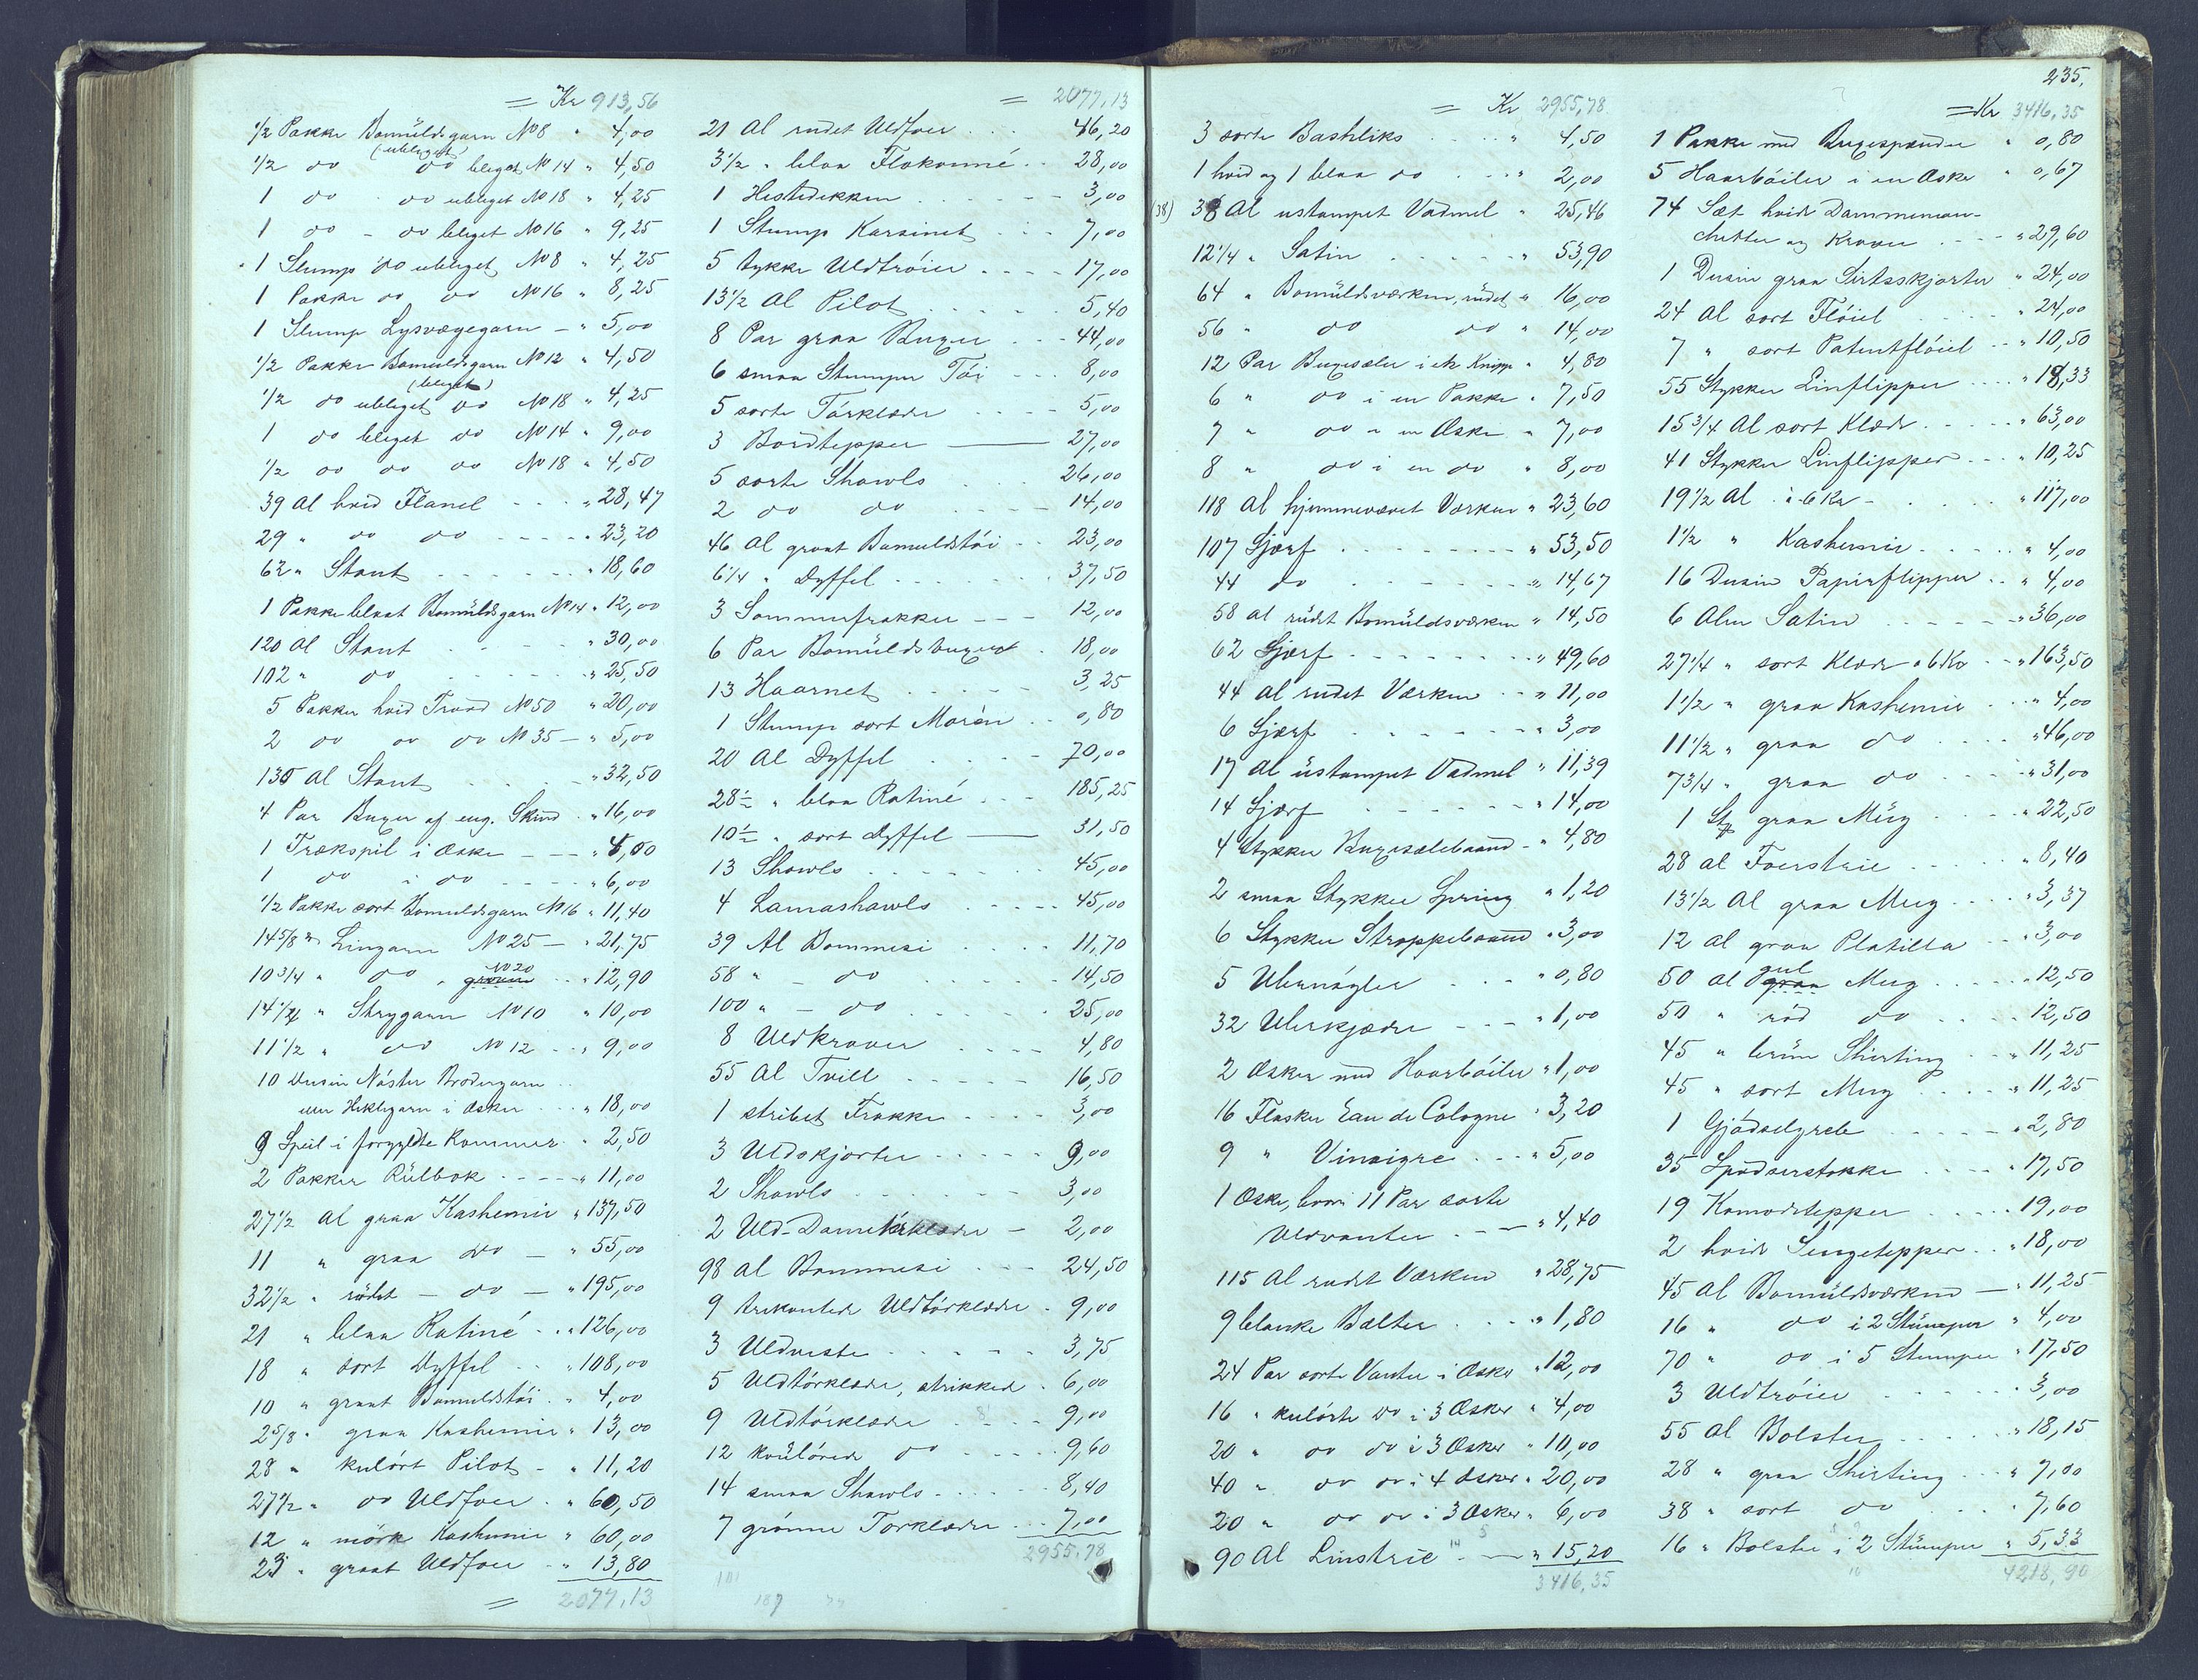 = Kr 913,56
1/2 Pakke Bomüldsgarn No 8 " 4,00
(ubleget)
1/2 do do bleget No 14 " 4,50
1 do do ubleget No 18 " 4,25
1 do - do bleget No 16 " 9,25
1 Slump do ubleget No 8 " 4,25
1 Pakke do do No 16 " 8,25
1 Slump Lysvægegarn - " 5,00
1/2 Pakke Bomuldsgarn No 12 " 4,50
(bleget)
1/2 do ubleget do No 18 " 4,25
1 do bleget do No 14 " 9,00
1/2 do do do No 18 " 4,50
39 Al hvid Flanel - - - " 28,47
29 " do do - - - - " 23,20
62 " Stout - - - - " 18,60
1 Pakke blaat Bomüldsgarn No 14 " 12,00
120 Al Stout - - " 30,00
102 " do - - - " 25,50
5 Pakker hvid Traad No 50 " 20,00
2 do do do No 35 - " 5,00
130 Al Stout - - - " 32,50
4 Par Buxer af eng. Skind " 16,00
1 Trækspil i Æske - - - " 4,00
1 do i do - - - - " 6,00
1/2 Pakke sort Bomuldsgarn No 16 " 11,40
14 5/8 " Lingarn No 25 - " 21,75
10 3/4 " do " No 20 " 12,90
14 1/4 " Strygarn No 10 " 10,00
11 1/2 " do No 12 - " 9,00
10 Dusin Nöster Brodergarn
eller Heklegarn i Æsker - - " 18,00
9 Speil i forgyldte Rammer - 2,50
2 Pakker Rülbok - - - - " 11,00
27 1/2 Al graa Kashemir " 137,50
11 " graa do - " 55,00
32 1/2 " rödt - do - " 195,00
21 " blaa Ratiné - " 126,00
18 " sort Dyffel - - " 108,00
10 " graat Bomuldstöi - " 4,00
2 5/8 " graa Kashemir " 13,00
28 " kulört Pilot - " 11,20
27 1/2 " do Uldfoer - " 60,50
12 " mörk Kashemir " 60,00
23 " graat Uldfoer - " 13,80
= 2077,13
= 2077,13
21 Al rudet Uldfoer - - 46,20
3 1/2 " blaa Flokonné - - 28,00
1 Hestedekken - - - - 3,00
1 Stump Karsinet - - - 7,00
5 tykke Uldtröier - - - - 17,00
13 1/2 Al Pilot - - - - 5,40
8 Par graa Buxer - - - 44,00
6 smaa Stumper Töi - - - 8,00
5 sorte Törklæder - - - - 5,00
3 Bordtepper - 27,00
5 sorte Shawls - - - 26,00
2 do do - - - - 14,00
46 Al graat Bomuldstöi - - 23,00
6 1/4 " Dyffel - - - - 37,50
3 Sommerfrakker - - - 12,00
6 Par Bomüldsbuxer - 18,00
13 Haarnet - - - - 3,25
1 Stump sort Moren - - 0,80
20 Al Dyffel - - - - 70,00
28 1/2 " blaa Ratiné - - - 185,25
10 1/2 " sort Dyffel - 31,50
13 Shawls - - - - 45,00
4 Lamashawls - - - - 45,00
39 Al Bommesi - - 11,70
58 " - do - - - - 14,50
100 " - do - - - - 25,00
8 Uldkraver - - - - 4,80
55 Al Tvill - - - - 16,50
1 stribet Frakke - - - - 3,00
3 Uldskjorter - - - - 9,00
2 Shawls - - - - 3,00
2 Uld-Dametörklæder - 2,00
98 Al Bommesi - - - 24,50
9 trekantede Uldtörklæder - 9,00
3 Uldveste - - - - 3,75
5 Uldtörklæder, strikkede - 6,00
9 Uldtörklæder - - - 9,00
12 koulörede do - - - - 9,60
14 smaa Shawls - - - - 8,40
7 grönne Törklæder - - - 7,00
2955,78
235.
= Kr 2955,78
3 sorte Bashliks - - - " 4,50
1 hvid og 1 blaa do - - - " 2,00
(38) 38 Al ustampet Vadmel " 25,46
12 1/4 " Satin - - - - " 53,90
64 " Bomüldsværken, rüdet " 16,00
56 " do do " 14,00
12 Par Buxeseler i et Knippe " 4,80
6 " do i en Pakke " 7,50
7 " do i en Æske " 7,00
8 " do i en do " 8,00
118 Al hjemmevævet Værken " 23,60
107 Sjærf - - - - - " 53,50
44 do - - - - - " 14,67
58 Al rüdet Bomüldsværken " 14,50
62 Sjærf - - - - - " 49,60
44 Al rudet Værken - - " 11,00
6 Sjærf - - - - - " 3,00
17 Al üstampet Vadmel " 11,39
14 Sjærf - - - - - " 14,00
4 Stykker Buxeselebaand - " 4,80
2 smaa Stykker Spring " 1,20
6 Stykker Stroppebaand " 3,00
5 Uhrnögler - - - " 0,80
32 Uhrkjæder - - - " 1,00
2 Æsker med Haarböiler " 1,00
16 Flasker Eau de Cologne " 3,20
9 " Vinaigre - - - " 5,00
1 Æske, hvori 11 Par sorte
Uldvanter - - - " 4,40
115 Al rudet Værken " 28,75
9 blanke Belter - - - " 1,80
24 Par sorte Vanter i Æsker " 12,00
16 " kulörte do i 3 Æsker " 4,00
20 " do do i 3 Æsker " 10,00
40 " do do i 4 Æsker " 20,00
20 " do do i 3 Æsker " 6,00
90 Al Linstrie - - " 15,20
3416,35
= Kr 3416,35
1 Pakke med Buxespænder " 0,80
5 Haarböiler i en Æske " 0,67
74 Sæt hvide Dammeman-
chetter og Kraver - - - - " 29,60
1 Dusin graa Sirtsskjorter " 24,00
24 Al sort Flöiel - - - " 24,00
7 " sort Patentflöiel - - " 10,50
55 Stykker Linflipper - - - " 18,33
15 3/4 Al sort Klæde - - - - " 63,00
41 Stykker Linflipper - - - " 10,25
19 1/2 Al - à 6 Kr - - - - " 117,00
1 1/2 " Kashemir - - - - " 4,00
16 Dusin Papirflipper - - " 4,00
6 Alen Satin - - - - " 36,00
27 1/4 " sort Klæde à 6 Kr - - " 163,50
1 1/2 " graa Kashemir - - - " 4,00
11 1/2 " graa do - - - - " 46,00
7 3/4 " graa do - - - - " 31,00
1 Stk graa Müg - - - - " 22,50
28 Al Foerstrie - - - " 8,40
13 1/2 Al graa Mug - - - - " 3,37
12 Al graa Platilla - - " 3,00
50 Al gul Mug - - - - " 12,50
50 " röd do - - - - 12,50
45 " brün Shirting - - " 11,25
45 " sort Mug - - - " 11,25
1 Gjödselgreb - - - - " 2,80
35 Spadserstokke - - - - " 17,50
19 Komodetepper - - - - 19,00
2 hvide Sengetepper - - " 18,00
45 Al Bomüldsværken - " 11,25
16 " do i 2 Stümper " 4,00
70 " do i 5 Stumper " 17,50
3 Uldtröier - - - - - 3,00
55 Al Bolster - - - - " 18,15
28 " graa Shirting - - - " 7,00
38 " sort do - - - 7,60
16 " Bolster i 2 Stümper " 5,33
4218,90